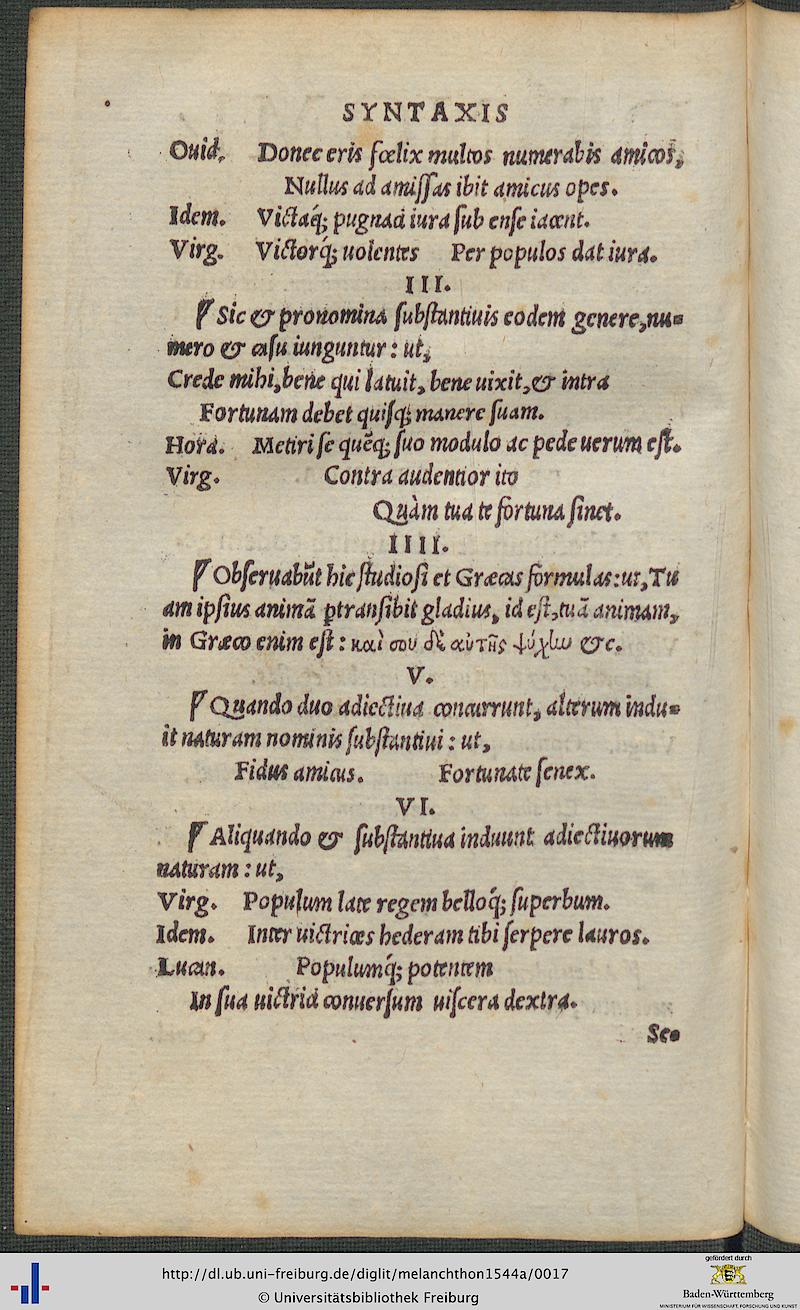 SYNTAXIS
Ouid. Donec eris fœlix multos numerabis amicos,
Nullus ad amiſſas ibit amicus opes.
Idem. Victaq́; pugnaci iura ſub enſe iacent.
Virg. Victorq́; uolentes Per populos dat iura.
III.
¶ Sic & pronomina ſubſtantiuis eodem genere, nu=
mero & caſu iunguntur: ut,
Crede mihi, bene qui latuit, bene uixit, & intra
Fortunam debet quiſq; manere ſuam.
Hora. Metiri ſe quẽq; ſuo modulo ac pede uerum eſt.
Virg. Contra audentior ito
Quàm tua te fortuna ſinet.
IIII.
¶ Obſeruabũt hic ſtudioſi et Græcas formulas: ut, Tu
am ipſius animã ꝑtranſibit gladius, id eſt, tuã animam,
in Græco enim eſt: καὶ σου δὲ αὐτῆς ψύχἰω &c.
V.
¶ Quando duo adiectiua concurrunt, alterum indu=
it naturam nominis ſubſtantiui: ut,
Fidus amicus. Fortunate ſenex.
VI.
¶ Aliquando & ſubſtantiua induunt adiectiuorum
naturam: ut,
Virg. Populum late regem belloq́; ſuperbum.
Idem. Inter uictrices hederam tibi ſerpere lauros.
Lucan. Populumq́; potentem
In ſua uictrici conuerſum uiſcera dextra.
Se=
http://dl.ub.uni-freiburg.de/diglit/melanchthon1544a/0017
© Universitätsbibliothek Freiburg
gefördert durch
Baden-Württemberg
MINISTERIUM FÜR WISSENSCHAFT, FORSCHUNG UND KUNST